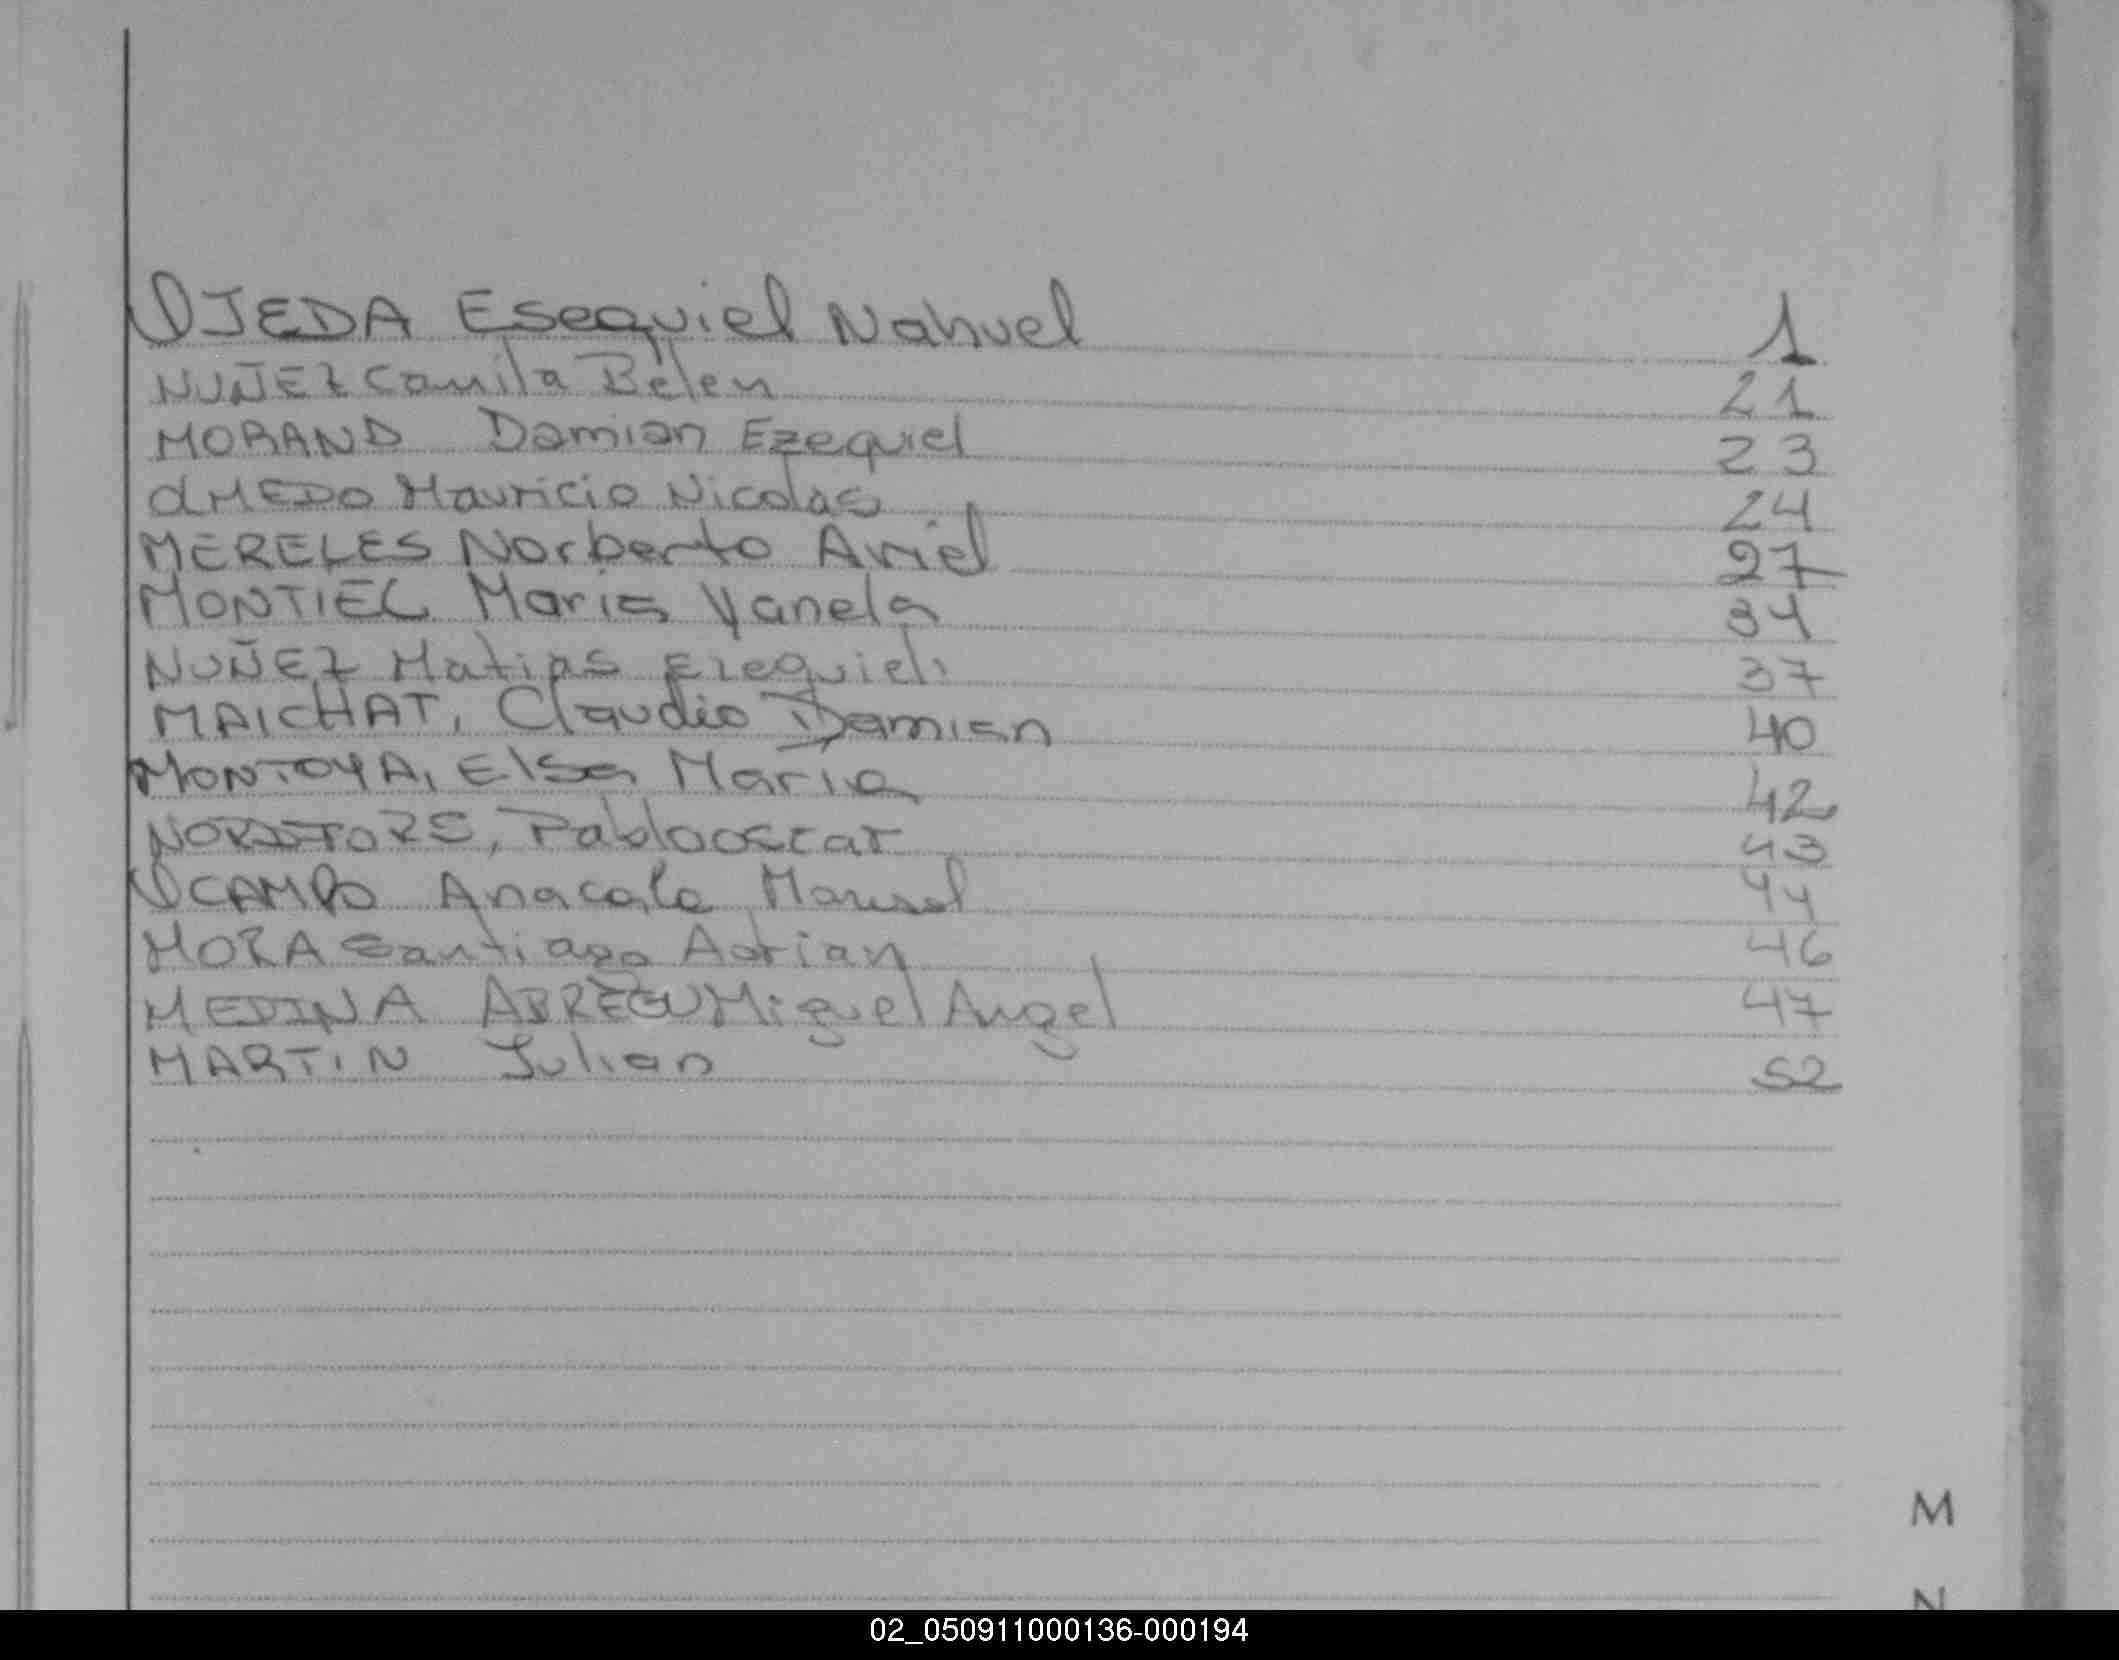 OJEDA Esequiel Nahuel 1
NUÑEZ Camila Belen 21
MORAND Damian Ezequiel 23
OLMEDO Mauricio Nicolas 24
MERELES Norberto Ariel 27
MONTIEL Maria Yanela 34
NUÑEZ Matias Ezequiel 37
MAICHAT, Claudio Damian 40
MONTOYA, Elsa Maria 42
Pablo oscar 43
OCAMPO Marisol 44
MORA Santiago Adrian 46
MEDINA ABREGU Miguel Angel 47
MARTIN Julian 52
M
N
02_050911000136-000194